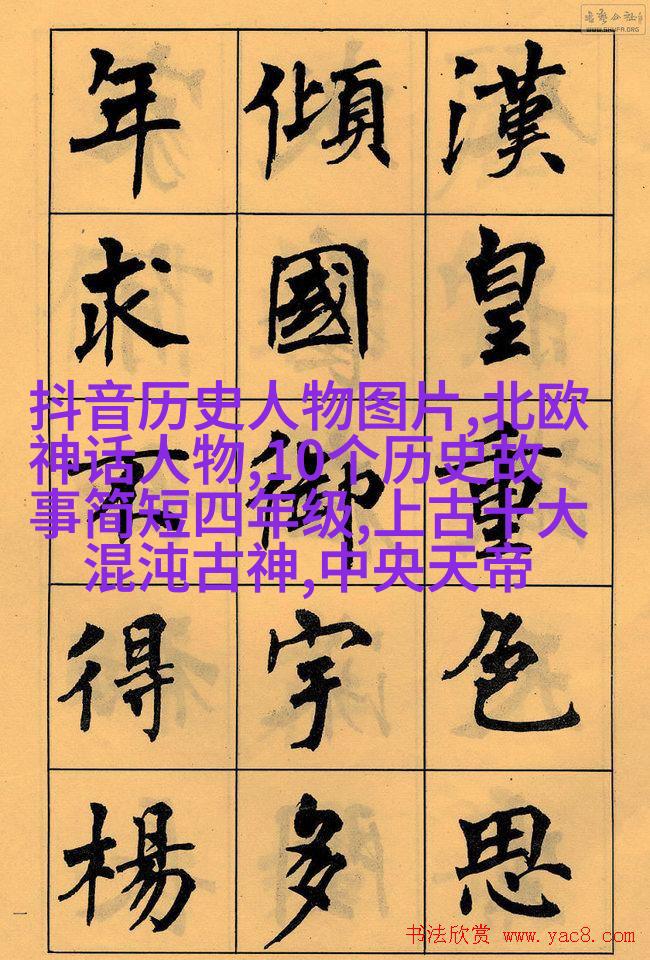 漢皇重色思
傾國御宇多
年求不得楊
抖音历史人物图片,北欧
神话人物,10个历史故
事简短四年级,上古十大
混沌古神,中央天帝
一
WWW.SHUFA.ORG
书法欣赏 www.yac8.com